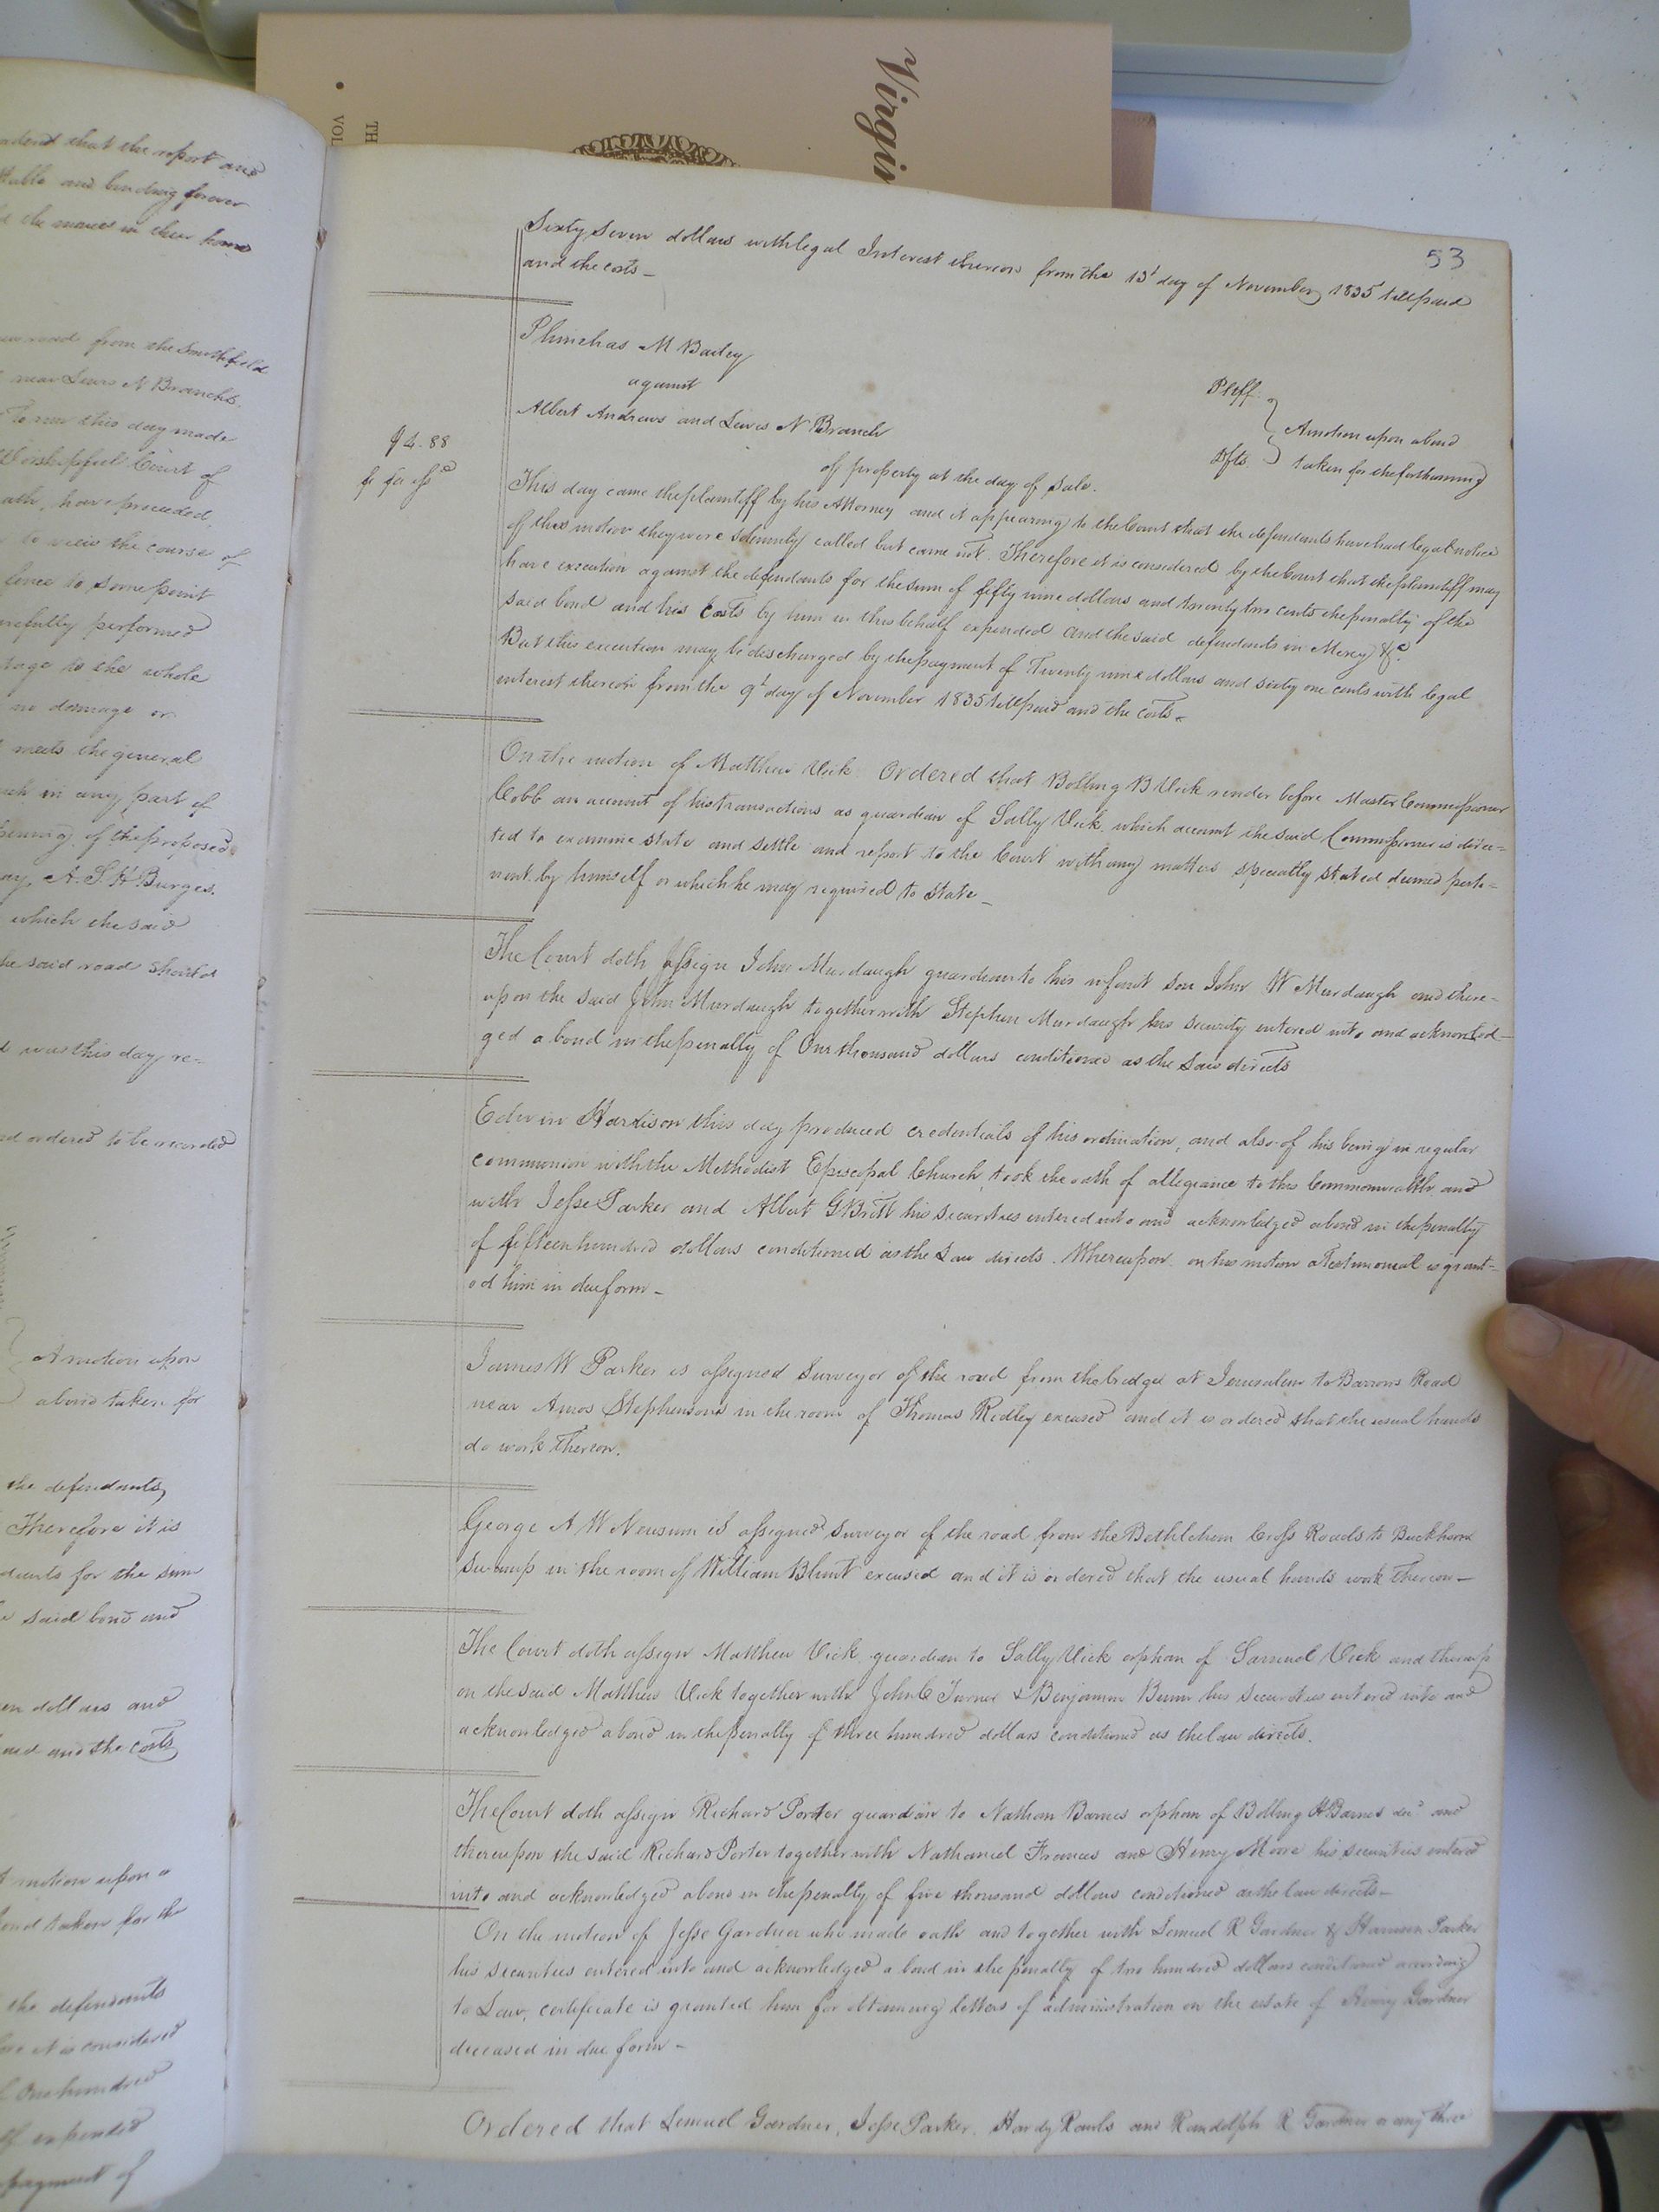 Virgin
TH
VOL
adent that the report and
table and binding forever
road from the Smithfield
near Lewis N Branchs.
Term this day made
Worshipful Court of
oath, have proceeded,
to view the course of
fence to some point
carefully performed
tage to the whole
no damage or
meets the general
in any part of
opening of the proposed
A. S. H Burges.
which the said
the said road should
was this day re-
ordered to be recorded
A motion upon
a bond taken for
the defendants
Therefore it is
for the sum
said bond and
dollars and
and the costs
motion upon a
bond taken for the
the defendants
it is considered
One hundred
expended
payment of
53
Sixty Seven dollars with legal Interest thereon from the 13t day of November 1835 till paid
and the costs -
Phinehas M Bailey Pltff.
against A motion upon a bond
Albert Andrews and Lewis N Branch Dfts. taken for the forthcoming
$4.88
fi fa issd
of property at the day of Sale.
This day came the plaintiff by his Attorney and it appearing to the Court that the defendants have had legal notice
of this motion they were solemnly called but came not. Therefore it is considered by the Court that the plaintiff may
have execution against the defendants for the sum of fifty nine dollars and twenty two cents the penalty of the
said bond and his Costs by him in this behalf expended and the said defendants in Mercy &c.
But this execution may be discharged by the payment of Twenty nine dollars and sixty one cents with legal
interest thereon from the 9t day of November 1835 till paid and the costs -
On the motion of Matthew Vick Ordered that Bolling B Vick render before Master Commissioner
Cobb an account of his transactions as guardian of Sally Vick, which account the said Commissioner is direc=
ted to examine state and settle and report to the Court with any matters specially stated deemed perti=
nent by himself or which he may required to state -
The Court doth assign John Murdaugh guardian to his infant son John W Murdaugh and there=
upon the said John Murdaugh together with Stephen Murdaugh his security entered into and acknowled-
ged a bond in the penalty of One thousand dollars conditioned as the Law directs
Edwin Hardison this day produced credentials of his ordination, and also of his being in regular
communion with the Methodist Episcopal Church, took the oath of allegiance to this Commonwealth and
with Jesse Parker and Albert G Britt his securities entered into and acknowledged a bond in the penalty
of fifteen hundred dollars conditioned as the Law directs. Whereupon on his motion a Testimonial is grant=
ed him in due form -
James W Parker is assigned Surveyor of the road from the bridge at Jerusalem to Barrows Road
near Amos Stephensons in the room of Thomas Ridley excused and it is ordered that the usual hands
do work Thereon.
George A W Newsum is assigned surveyor of the road from the Bethlehem Cross Roads to Buckhorn
Swamp in the room of William Blunt excused and it is ordered that the usual hands work Thereon -
The Court doth assign Matthew Vick guardian to Sally Vick orphan of Samuel Vick and thereup
on the said Matthew Vick together with John C Turner & Benjamin Bunn his securities entered into and
acknowledged a bond in the penalty of three hundred dollars conditioned as the law directs.
The Court doth assign Richard Porter guardian to Nathan Barnes orphan of Bolling H Barnes decd and
thereupon the said Richard Porter together with Nathaniel Frances and Henry Moore his securities entered
into and acknowledged a bond in the penalty of five thousand dollars conditioned as the law directs -
On the motion of Jesse Gardner who made oath and together with Lemuel R Gardner & Harrison Parker
his securities entered into and acknowledged a bond in the penalty of two hundred dollars conditioned according
to Law, certificate is granted him for obtaining letters of administration on the estate of Henry Gardner
deceased in due form -
Ordered that Lemuel Gardner, Jesse Parker, Hardy Rawls and Randolph R Gardner or any three